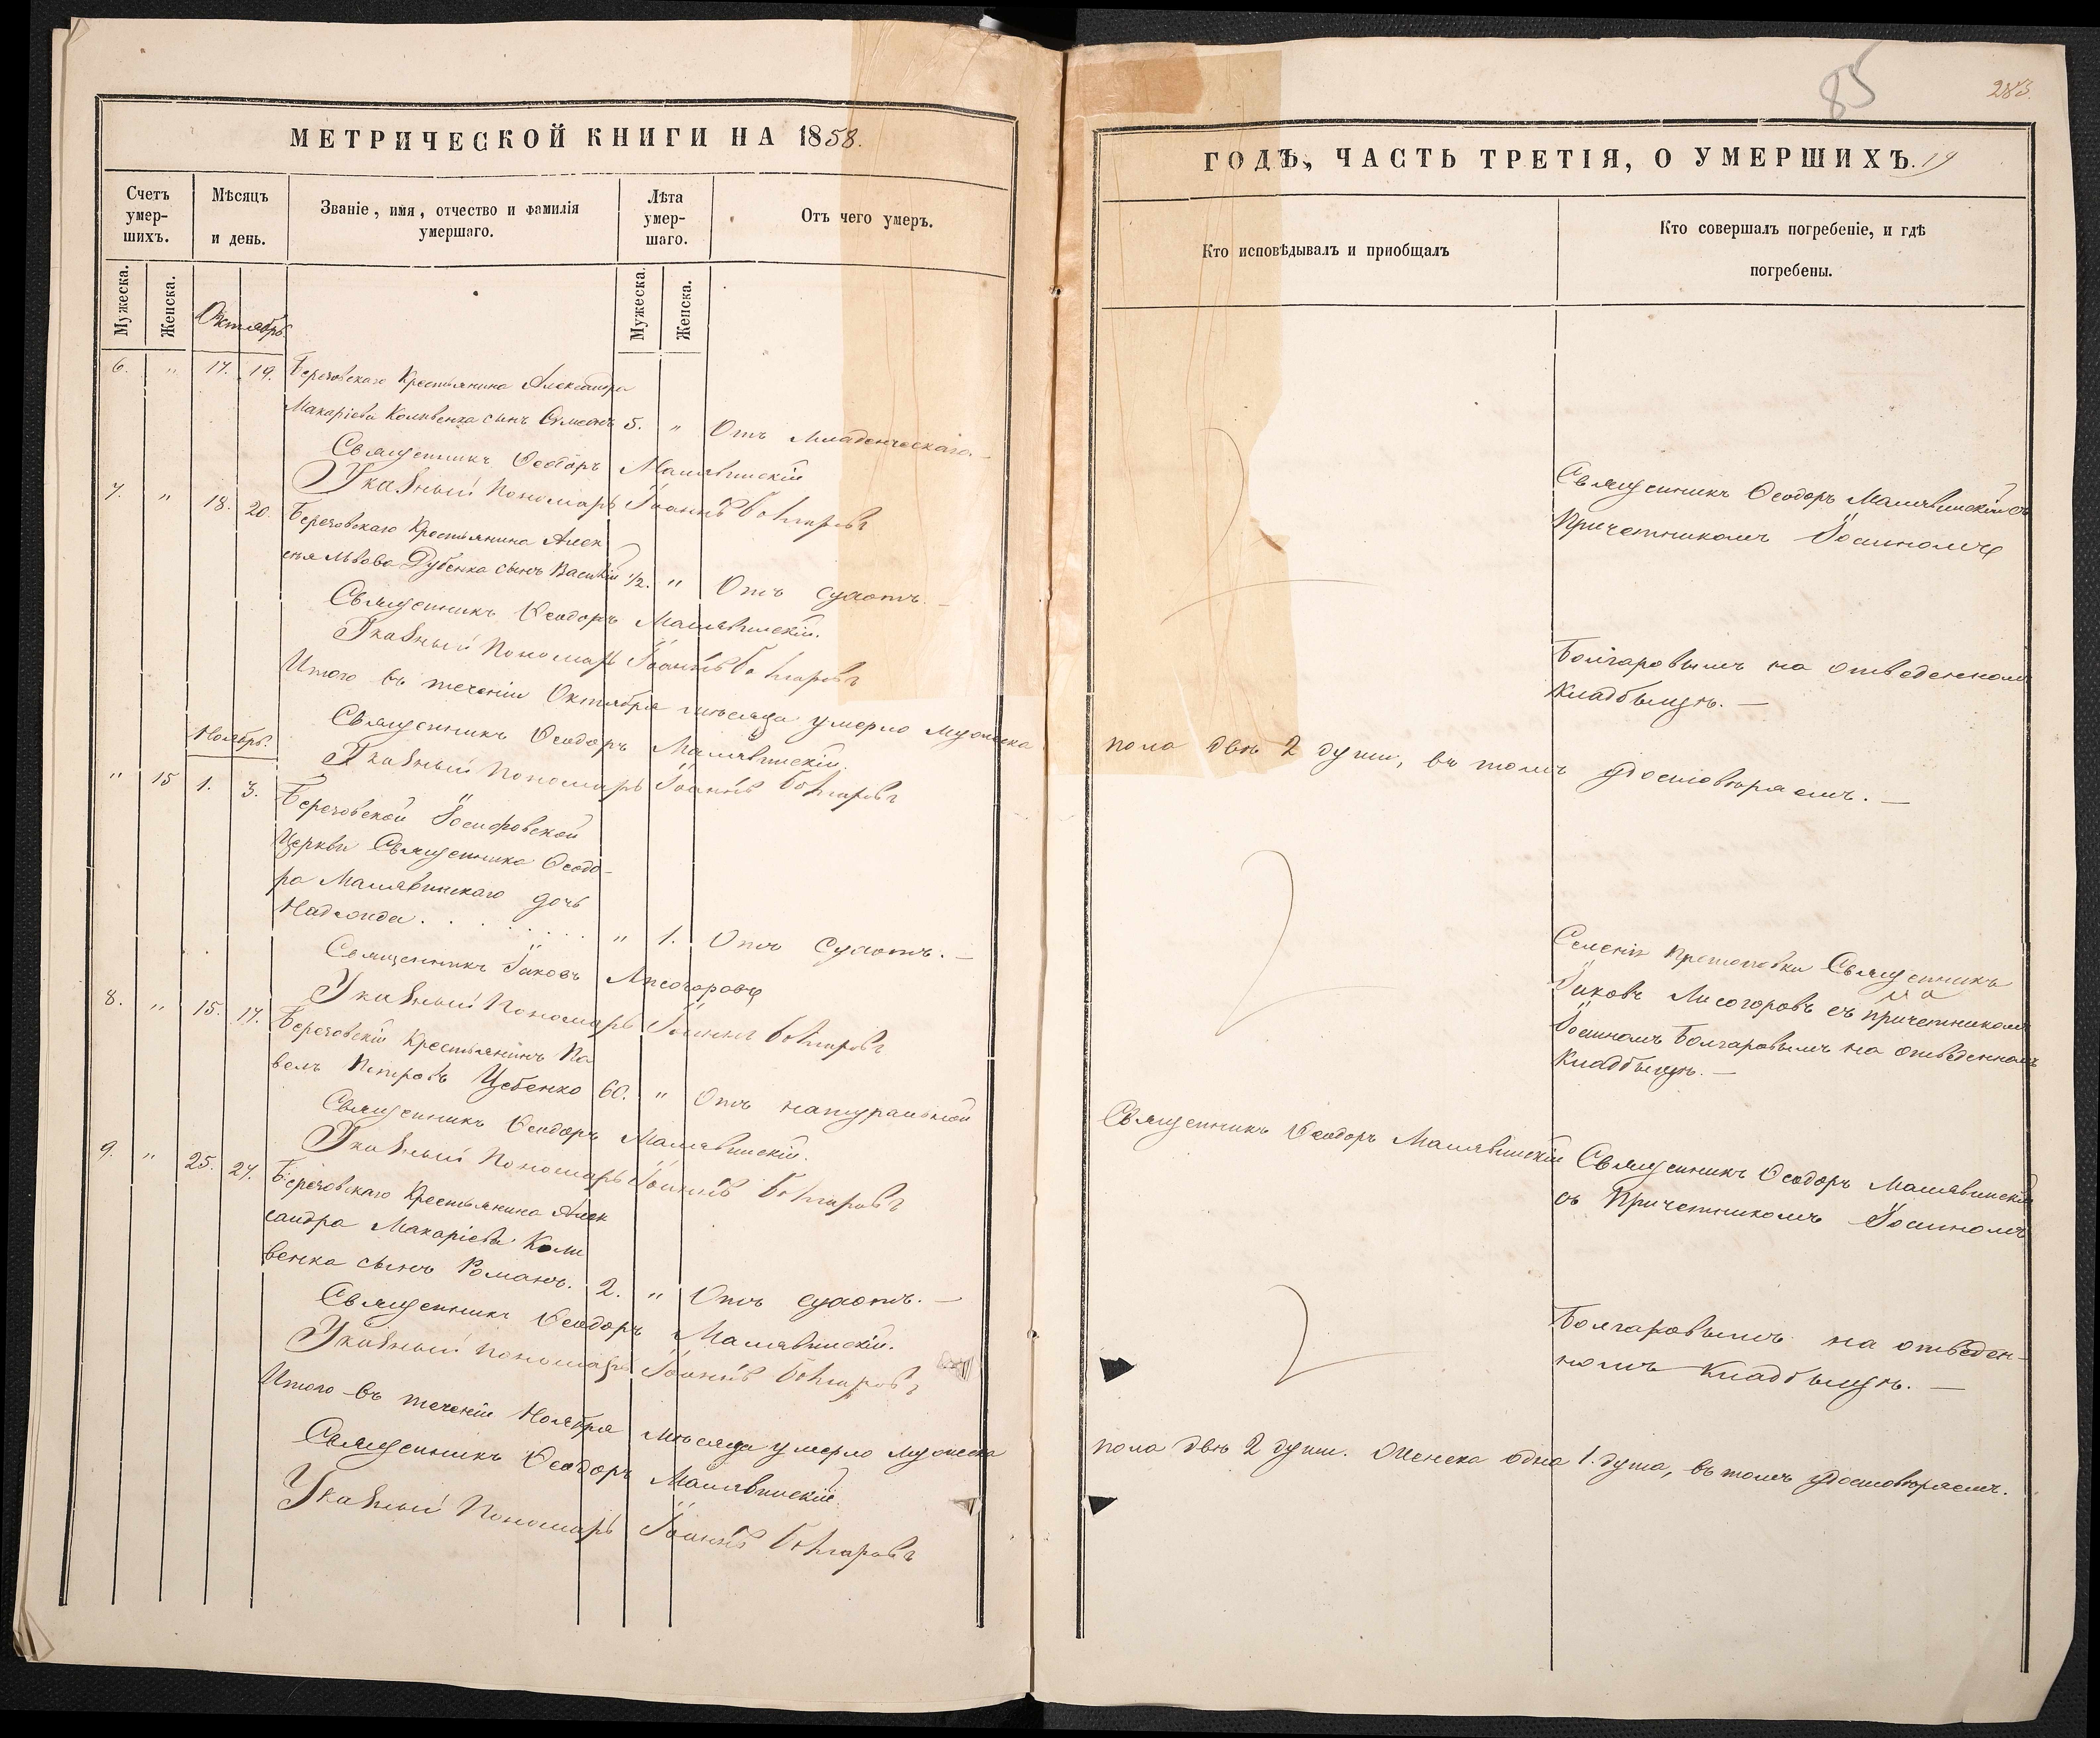 МЕТРИЧЕСКОЙ КНИГИ НА 1858.
Счетъ умер-шихъ.
Мѣсяцъ и день.
Званіе, имя, отчество и фамилія
умершаго.
Лѣта умер-шаго.
Отъ чего умеръ.
Мужеска.
Женска.
Октябрь.
Мужеска.
Женска.
6. " 17. 19. Березовскаго Крестьянина Александра
Макаріева Коливенка сынъ Сѵмеонъ 5. " Отъ младенческаго.
Священникъ Ѳеодоръ Малявинскій
Указный Пономарь Іоаннъ Болгаровъ
7. " 18. 20. Березовскаго Крестьянина Алек
сѣя Львова Дубенка сынъ Василій 1/2. " Отъ сухотъ. —
Священникъ Ѳеодоръ Малявинскій.
Указный Пономарь Іоаннъ Болгаровъ
Итого въ теченіи Октября мѣсяца умерло мужеска
Священникъ Ѳеодоръ Малявинскій.
Указный Пономарь Іоаннъ Болгаровъ
Ноябрь.
" 15 1. 3. Березовской Іосифовской
Церкви Священника Ѳеодо-
ра Малявинскаго дочь
Надежда. . . . . . . " 1. Отъ Сухотъ. —
Священникъ Іаковъ Лисогоровъ
Указный Пономарь Іоаннъ Болгаровъ
8. " 15. 17. Березовскій Крестьянинъ Па
велъ Петровъ Цебенко 60. " Отъ натуральной
Священникъ Ѳеодоръ Малявинскій.
Указный Пономарь Іоаннъ Болгаровъ
9. " 25. 27. Березовскаго Крестьянина Алек
сандра Макаріева Коли
венка сынъ Романъ. 2. " Отъ сухотъ. —
Священникъ Ѳеодоръ Малявинскій.
Указный Пономарь Іоаннъ Болгаровъ
Итого въ теченіи Ноября мѣсяца умерло мужеска
Священникъ Ѳеодоръ Малявинскій.
Указный Пономарь Іоаннъ Болгаровъ
85
283.
ГОДЪ, ЧАСТЬ ТРЕТІЯ, О УМЕРШИХЪ. 19
Кто исповѣдывалъ и приобщалъ
Кто совершалъ погребеніе, и гдѣ
погребены.
Священникъ Ѳеодоръ Малявинскій съ
Причетникомъ Іоанномъ
Болгаровымъ на отведенномъ
Кладбищѣ. —
пола двѣ 2 души, въ томъ удостовѣряемъ. —
Священникъ
Іаковъ Лисогоровъ съ причетникомъ
Іоанномъ Болгаровымъ на отведенномъ
Кладбищѣ. —
Священникъ Ѳеодоръ Малявинскій
Священникъ Ѳеодоръ Малявинскій
съ Причетникомъ Іоанномъ
Болгаровымъ на отведен-
номъ Кладбищѣ. —
пола двѣ 2 души. Женска одна 1. душа, въ томъ удостовѣряемъ.